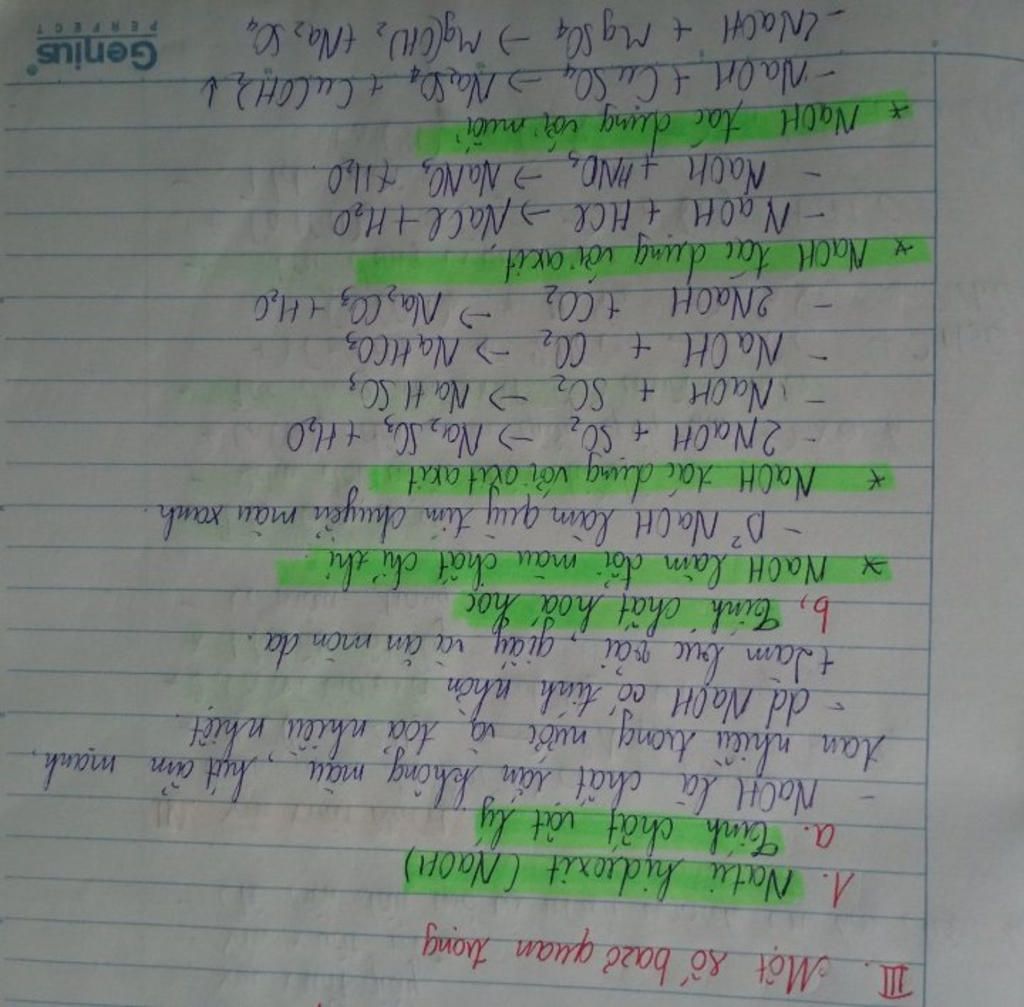 III. Một số bazơ quan trọng
1. Natri hidroxit (NaOH)
a. Tính chất vật lý
- NaOH là chất rắn không màu, hút ẩm mạnh,
tan nhiều trong nước và toả nhiều nhiệt.
- dd NaOH có tính nhờn
+ Làm bục vải, giấy và ăn mòn da.
b, Tính chất hoá học
* NaOH làm đổi màu chất chỉ thị.
- D² NaOH làm quỳ tím chuyển màu xanh.
* NaOH tác dụng với oxit axit
- 2NaOH + SO₂ → Na₂SO₃ + H₂O
- NaOH + SO₂ → NaHSO₃
- NaOH + CO₂ → NaHCO₃
- 2NaOH + CO₂ → Na₂CO₃ + H₂O
* NaOH tác dụng với axit
- NaOH + HCl → NaCl + H₂O
- NaOH + HNO₃ → NaNO₃ + H₂O.
* NaOH tác dụng với muối
- NaOH + CuSO₄ → Na₂SO₄ + Cu(OH)₂ ↓
- 2NaOH + MgSO₄ → Mg(OH)₂ + Na₂SO₄
Genius
PERFECT